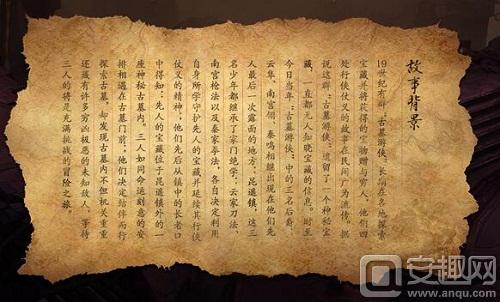 故事背景
19世纪有群“古墓游侠”长期在各地探索
宝藏并将获得的宝物赠与穷人。他们四
处行侠仗义的故事在民间广为流传。据
说这群“古墓游侠”遗留了一个神秘宝
藏，一直都无人知晓宝藏的信息。时至
今日当年“古墓游侠”中的三名后裔：
云隼、南宫翎、秦鸣相继出现在他们先
人最后一次露面的地方：昆遗镇，这三
名少年都继承了家门绝学：云家刀法、
南宫枪法以及秦家拳法。各自决定利用
自身所学守护先人的宝藏并延续其行侠
仗义的精神，他们先后从镇中的长老口
中得知：先人的宝藏位于昆遗镇外的一
座神秘古墓内。三人如同命运刻意的安
排相遇在古墓门前；他们决定结伴而行
探索古墓，却发现古墓内不但机关重重
还藏有许多穷凶极恶的未知敌人，等待
三人的将是充满挑战的冒险之旅。
安趣网
www.anqu.com